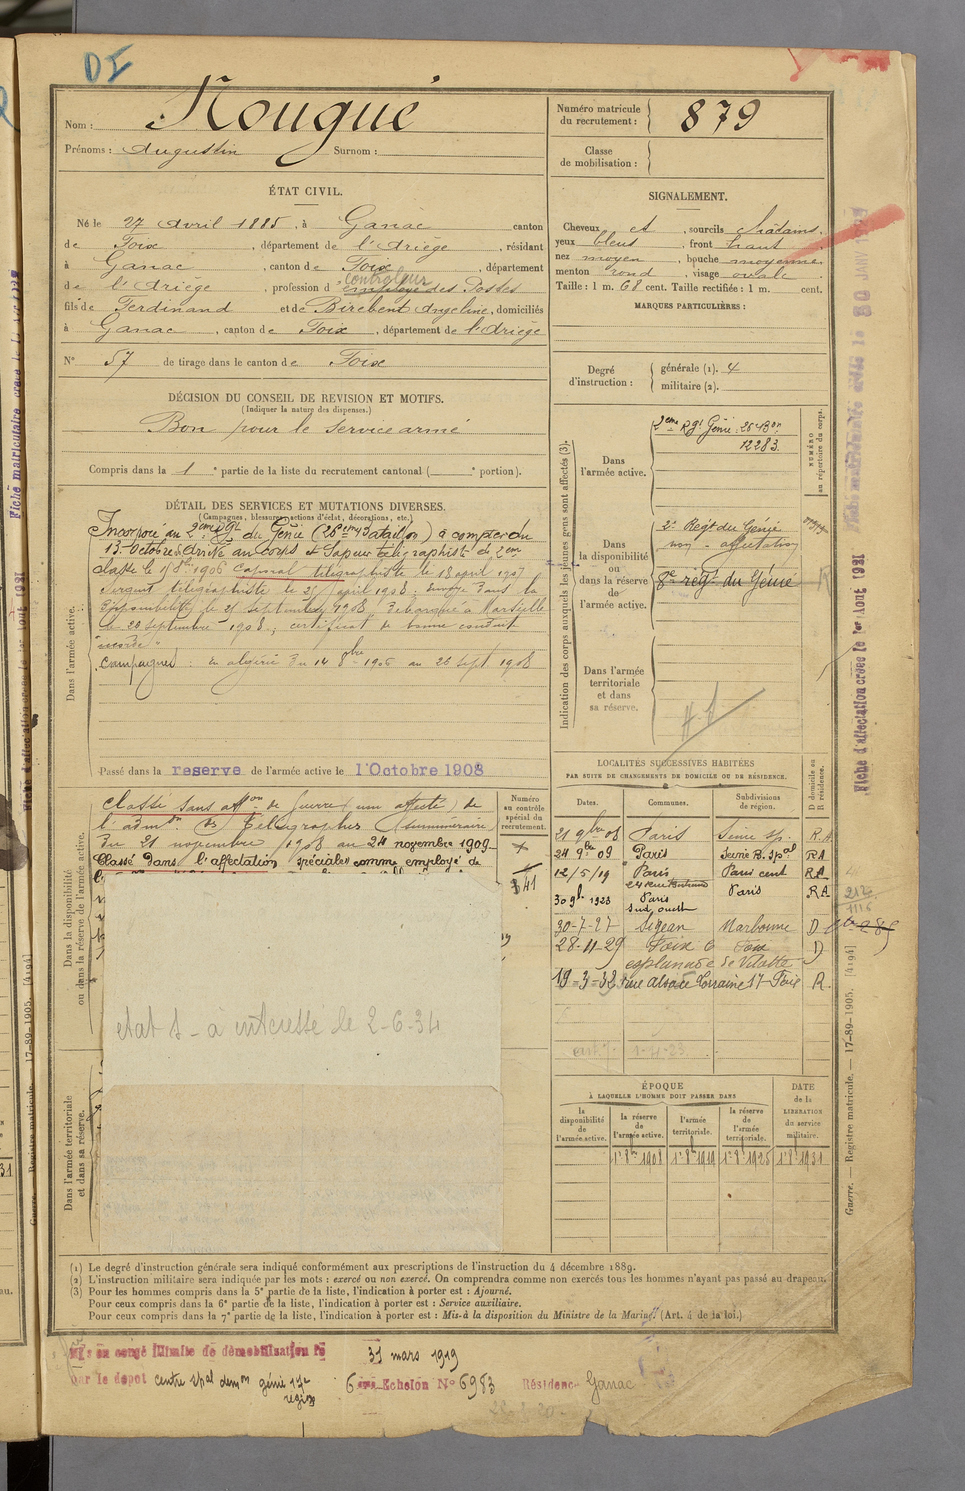 DI
Nom : Nougué
Prénoms : Augustin Surnom :
Numéro matricule
du recrutement : 879
Classe
de mobilisation :
ÉTAT CIVIL.
Né le 27 Avril 1885, à Ganac canton
de Foix, département de l'Ariège, résidant
à Ganac, canton de Foix, département
de l'Ariège, profession d'employé des Postes
contrôleur
fils de Ferdinand et de Birebent Angeline, domiciliés
à Ganac, canton de Foix, département de l'Ariège
N° 57 de tirage dans le canton de Foix
SIGNALEMENT.
Cheveux et, sourcils châtains,
yeux bleus, front haut
nez moyen, bouche moyenne,
menton rond, visage ovale
Taille : 1 m. 68 cent. Taille rectifiée : 1 m. cent.
MARQUES PARTICULIÈRES :
DÉCISION DU CONSEIL DE REVISION ET MOTIFS.
(Indiquer la nature des dispenses.)
Bon pour le service armé
Compris dans la 1e partie de la liste du recrutement cantonal ( e portion).
Degré
d'instruction :
générale (1). 4
militaire (2).
DÉTAIL DES SERVICES ET MUTATIONS DIVERSES.
(Campagnes, blessures, actions d'éclat, décorations, etc.)
Dans l'armée active.
Incorporé au 2eme Rgt du Génie (26eme Bataillon) à compter du
13 Octobre, arrivé au corps et Sapeur télégraphiste de 2eme
classe le 1906 Caporal télégraphiste le 18 avril 1907
Sergent télégraphiste le 21 avril 1908 ; envoyé dans la
disponibilité le 21 septembre 1908. Débarqué à Marseille
le 20 septembre 1908, certificat de bonne conduite
accordé
Campagnes : en algérie du 14 8bre 1906 au 26 sept 1908
Passé dans la reserve de l'armée active le 1 Octobre 1908
Indication des corps auxquels les jeunes gens sont affectés (3).
NUMÉRO
au répertoire du corps.
Dans
l'armée active.
2eme Rgt Génie. 26 Bon
12283
Dans
la disponibilité
ou
dans la réserve
de
l'armée active.
2e Regt du Génie
non-affectation
8e regt du Génie
Dans l'armée
territoriale
et dans
sa réserve.
LOCALITÉS SUCCESSIVES HABITÉES
PAR SUITE DE CHANGEMENTS DE DOMICILE OU DE RÉSIDENCE.
Dates. Communes. Subdivisions
de région.
D domicile ou
R résidence.
21 9bre 08 Paris Seine sp. R.A
24 9bre 09 Paris Seine B. spal RA
12/5/19 Paris Paris cent RA
24 rue Bertrand
30 9b 1923 Paris Paris RA
Sud ouest
30-7-27 Sigean Narbonne D
28-11-29 Foix 6 Foix D
esplanade de Villote
19-3-32 rue Alsace Lorraine 17 - Foix R.
Dans la disponibilité
ou dans la réserve de l'armée active.
Numéro
au contrôle
spécial du
recrutement.
Classé sans affon de Guerre (non affecté) de
l'admon des Télégraphes (surnuméraire
du 21 novembre 1908 au 24 novembre 1909
Classé dans l'affectation spéciale comme employé de
341
etat S - à intéressé le 2-6-34
Dans l'armée territoriale
et dans sa réserve.
ÉPOQUE
À LAQUELLE L'HOMME DOIT PASSER DANS
DATE
de la
LIBÉRATION
du service
militaire.
la
disponibilité
de
l'armée active.
la réserve
de
l'armée active.
l'armée
territoriale.
la réserve
de
l'armée
territoriale.
1r 8bre 1908 1r 8b 1919 1r 8b 1925 1r 8b 1931
(1) Le degré d'instruction générale sera indiqué conformément aux prescriptions de l'instruction du 4 décembre 1889.
(2) L'instruction militaire sera indiquée par les mots : exercé ou non exercé. On comprendra comme non exercés tous les hommes n'ayant pas passé au drapeau.
(3) Pour les hommes compris dans la 5e partie de la liste, l'indication à porter est : Ajourné.
Pour ceux compris dans la 6e partie de la liste, l'indication à porter est : Service auxiliaire.
Pour ceux compris dans la 7e partie de la liste, l'indication à porter est : Mis à la disposition du Ministre de la Marine. (Art. 4 de la loi.)
Mis en congé illimité de démobilisation le 31 mars 1919
par le depot centre spal demon génie 17e
region
6eme Echelon N° 6983 Résidence Ganac
Fiche d'affectation créée le 1er Août 1931
Guerre. — Registre matricule. — 17-89-1905. [4194]